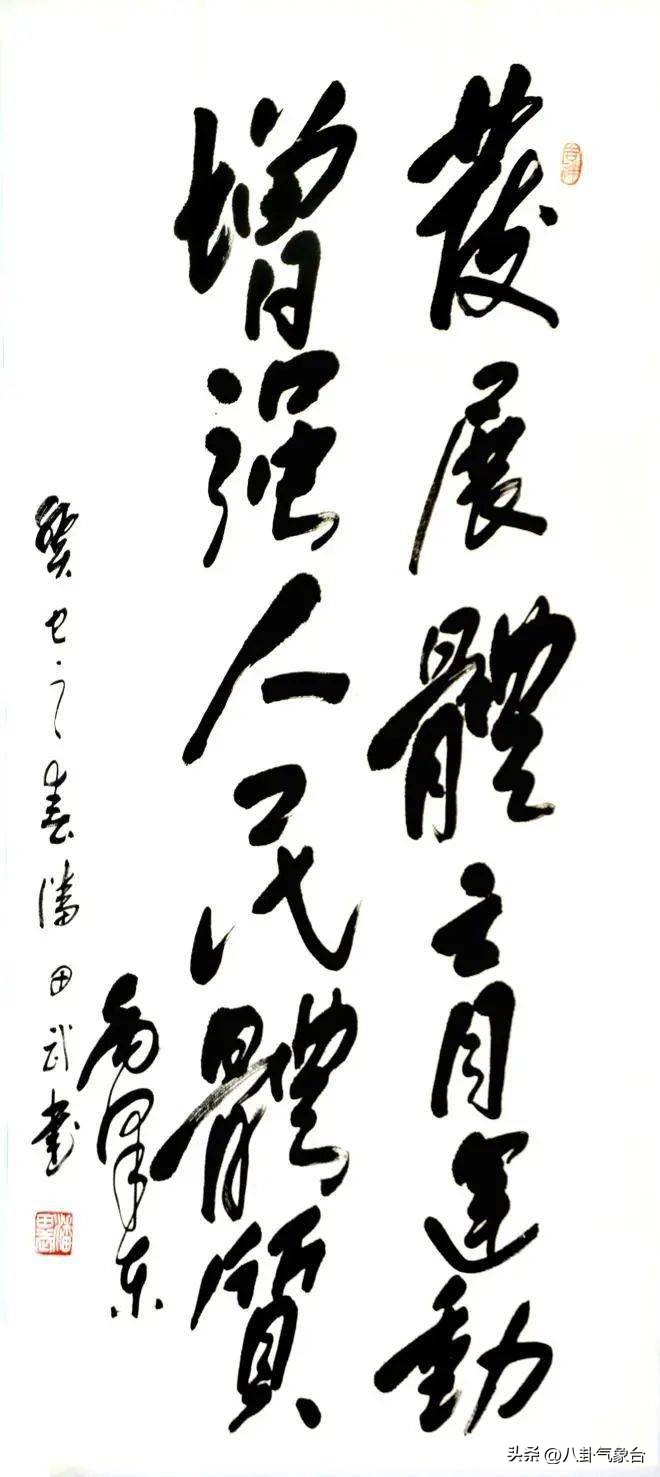 發展體育運動
增强人民體質
毛澤东
癸巳之春潘田武書
头条 @八卦气象台